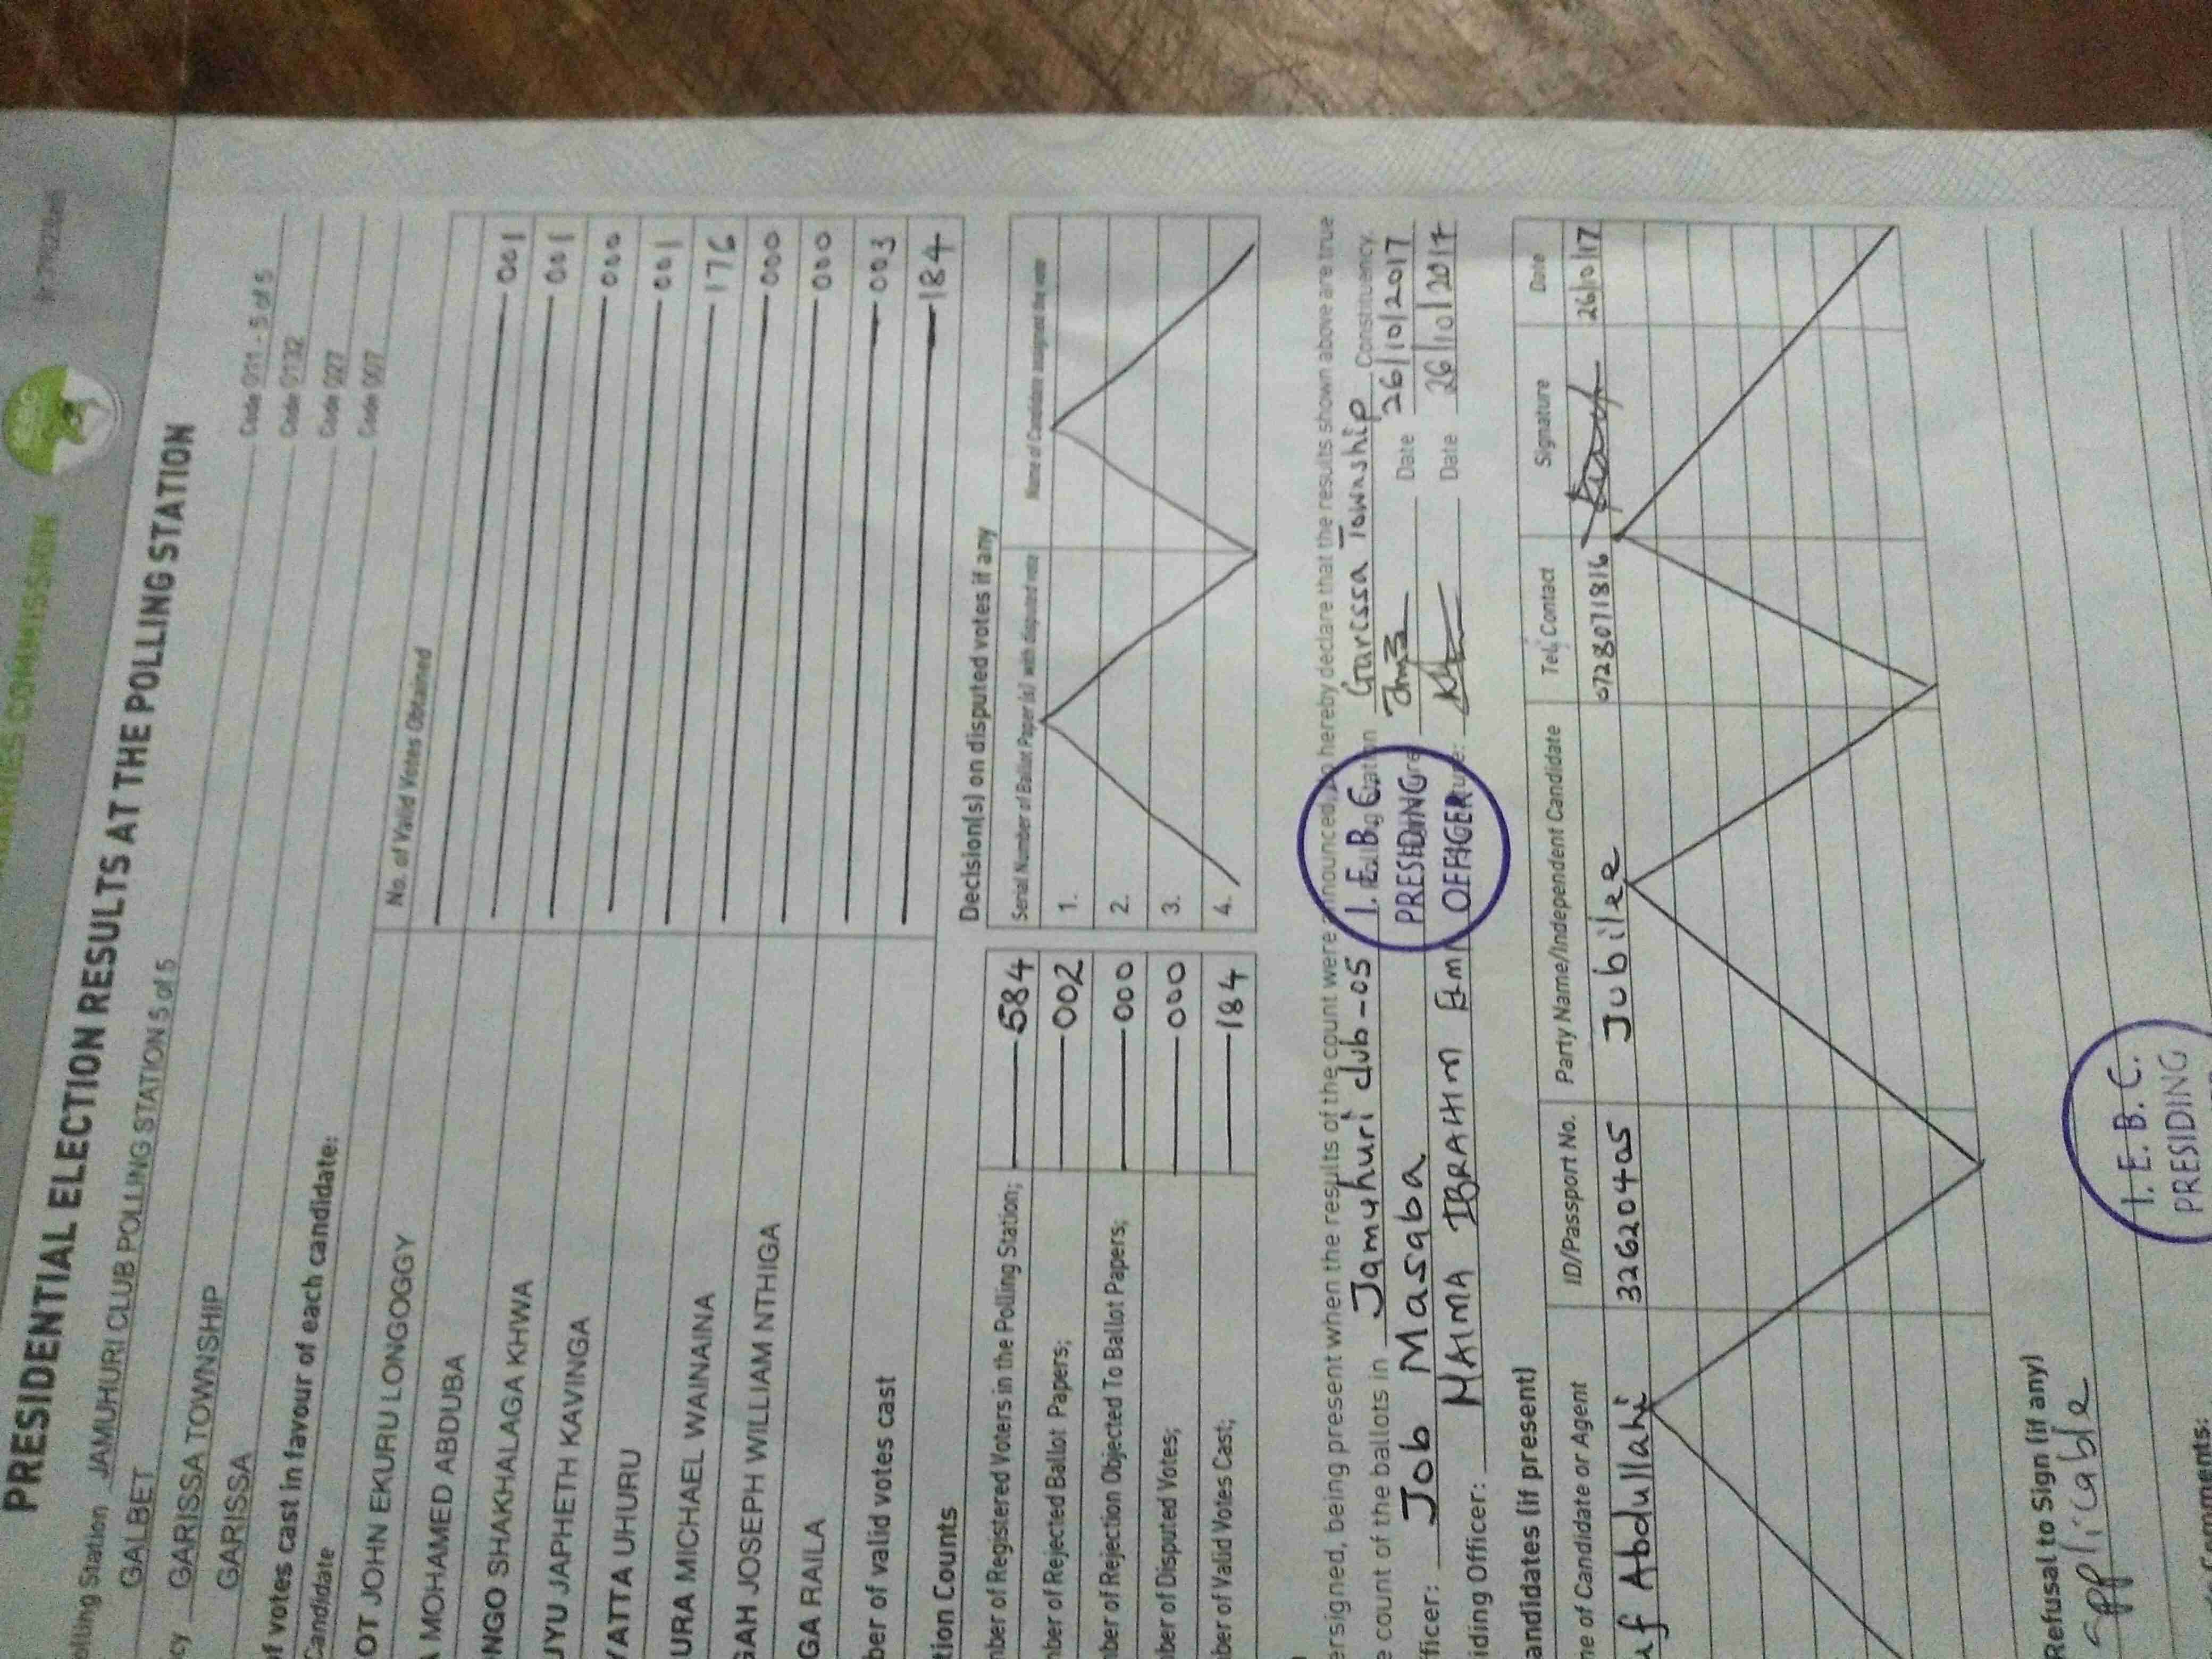 ARIES COMMISSION
IEBC
PRESIDENTIAL ELECTION RESULTS AT THE POLLING STATION
olling Station JAMUHURI CLUB POLLING STATION 5 of 5 Code 011 - 5 of 5
GALBET Code 0132
cy GARISSA TOWNSHIP Code 027
GARISSA Code 007
of votes cast in favour of each candidate:
Candidate No. of Valid Votes Obtained
OT JOHN EKURU LONGOGGY 001
A MOHAMED ABDUBA 001
NGO SHAKHALAGA KHWA 000
JYU JAPHETH KAVINGA 001
YATTA UHURU 176
URA MICHAEL WAINAINA 000
GAH JOSEPH WILLIAM NTHIGA 000
GA RAILA 003
ber of valid votes cast 184
tion Counts Decision(s) on disputed votes if any
Serial Number of Ballot Paper (s) with disputed vote Name of Candidate assigned the vote
nber of Registered Voters in the Polling Station; 584 1.
nber of Rejected Ballot Papers; 002 2.
nber of Rejection Objected To Ballot Papers; 000 3.
ber of Disputed Votes; 000 4.
ber of Valid Votes Cast; 184
ersigned, being present when the results of the count were announced, do hereby declare that the results shown above are true
e count of the ballots in Jamuhuri club-05 Garissa Township Constituency.
fficer: Job Masaba Date 26/10/2017
iding Officer: MAIMA IBRAHIM Date 26/10/2017
I.E.B.C.
PRESIDING
OFFICER
andidates (if present)
me of Candidate or Agent ID/Passport No. Party Name/Independent Candidate Tel. Contact Signature Date
uf Abdullahi 32620405 Jubilee 0728071816 26/10/17
Refusal to Sign (if any)
applicable
I.E.B.C.
PRESIDING
omments: